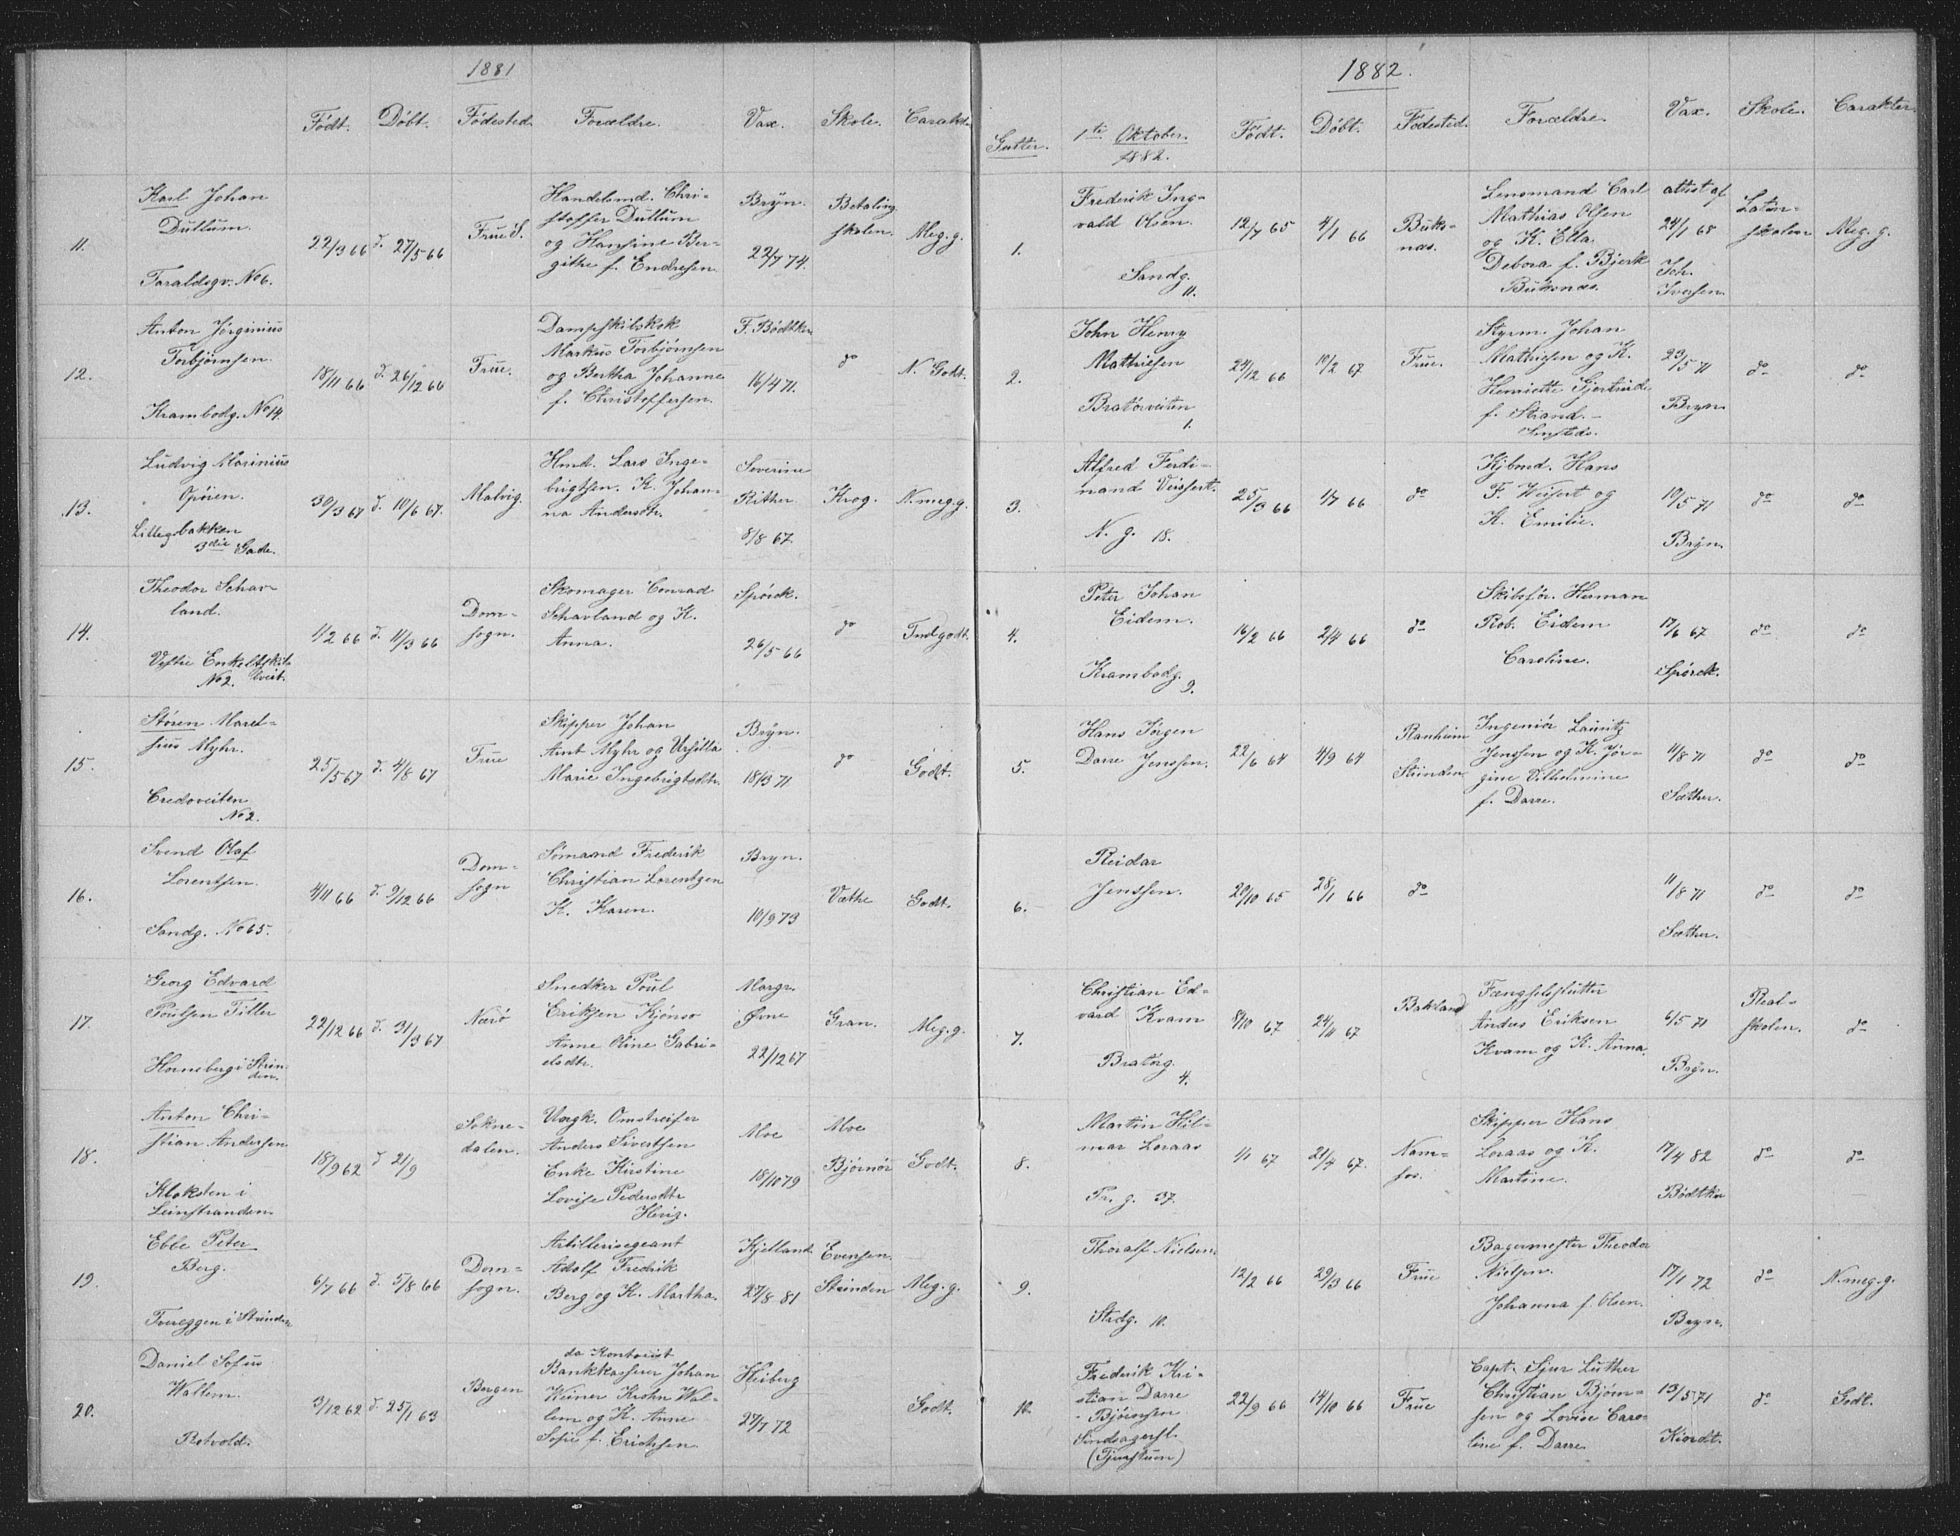 1881
Født. Døbt. Fødested. Forældre. Vax. Skole. Carakt.
11.
Karl Johan
Dullum.
Taraldsgv. No 6.
22/3 66 d. 27/5 66
Frue S.
Handelsmd. Chri-
stoffer Dullum
og Hansine Ber-
githe f. Endresen.
Bryn.
22/7 74.
Betaling
skolen.
Meg. g.
12.
Anton Jørginius
Torbjørnsen.
Krambodg. No 14.
18/11 66 d. 26/12 66
Frue.
Dampskibskok
Markus Torbjørnsen
og Bertha Johanne
f. Christoffersen.
F. Bödtker
16/4 71.
do
N. Godt.
13.
Ludvig Marinius
Opöien.
Lillegbakken
3die Gade.
30/3 67 d. 10/6 67.
Malvig.
Hmd. Lars Inge-
brigtsen. K. Johan-
na Andersdtr.
Severine
Rither.
8/8 67.
Krog.
N. meg. g.
14.
Theodor Schav-
land.
Vestre Enkeltskils
No 2. Veit.
1/2 66 d. 11/3 66
Dom-
sogn.
Skomager Conrad
Schavland og K.
Anna.
Spørck.
26/5 66
do
Tmdgodt.
15.
Støren Marel-
sius Myhr.
Credoveiten
No 2.
25/5 67 d. 4/8 67
Frue
Skipper Johan
Arnt Myhr og Ursilla
Marie Ingebrigtsdtr.
Bryn.
18/3 71
do
Godt.
16.
Svend Olaf
Lorentsen.
Sandg. No 65.
4/11 66 d. 9/12 66
Dom-
sogn
Sømand Frederik
Christian Lorentzen
K. Karen.
Bryn.
10/9 73
Væthe
Godt.
17.
Georg Edvard
Poulsen Tiller
Hornebergi Strin-
den.
22/12 66 d. 31/3 67
Nærö
Snedker Poul
Eriksen Kjönsø
Anne Oline Gabri-
elsdtr.
Margr.
Øvne
22/12 67
Gran.
Meg. g.
18.
Anton Chri-
stian Andersen
Kloksten i
Leinstranden.
18/9 62 d 21/9
Sokne-
dalen.
Uægk. Omstreifer
Anders Sivertsen
Enke Kirstine
Lovise Pedersdtr
Herig.
Moe
18/10 79
Moe
Bjørnør
Godt.
19.
Ebbe Peter
Berg.
Tvereggen i Strinden
6/7 66 d. 5/8 66
Dom-
sogn.
Artillerisegeant
Adolf Fredrik
Berg og K. Martha.
Kjelland
27/8 81
Evensen
Strinden
Meg. g.
20.
Daniel Sofus
Wallem.
Rotvold.
3/12 62 d. 25/1 63
Bergen
da Kontorist
Bankkasserer Johan
Weiner Krohn Wal-
lem og K. Anne
Sofie f. Erichsen.
Heiberg
27/7 72
Godt.
1882.
Gutter. 1te Oktober.
1882.
Født. Døbt. Fødested. Forældre. Vax. Skole. Carakter.
1.
Frederik Ing-
vald Olsen.
Sandg.
11.
12/7 65 4/1 66
Buks-
næs.
Lensmand Carl
Mathias Olsen
og K. Ella
Debora f. Bjerk
Buksnæs.
attest af
24/1 68
Joh.
Iversen.
Latin-
skolen
Meg. g.
2.
John Henry
Mathiesen
Bratörveiten
1.
24/12 66 10/2 67
Frue.
Styrm. Johan
Mathiesen og K.
Henriette Gjertrude
f. Strand.-
Smsteds.
23/5 71
Bryn.
do
do
3.
Alfred Ferdi-
nand Veissert.
N. g. 18.
25/3 66 1/7 66
do
Kjbmd. Hans
F. Weisert og
K. Emilie.
10/5 71
Bryn.
do
do
4.
Peter Johan
Eidem.
Krambodg.
9.
16/2 66 2/4 66
do
Skibsför. Herman
Rob. Eidem
Caroline.
17/6 67
Spørck.
do
do
5.
Hans Jörgen
Darre Jenssen.
22/6 64 4/9 64
Ranheim
Strinden
Ingeniör Lauritz
Jenssen og K. Jör-
gine Vilhelmine
f. Darre.
11/8 71
Sæther.
do
do
6.
Reidar
Jenssen.
20/10 65 28/1 66
do
11/8 71
Sæther.
do
do
7.
Christian Ed-
vard Kvam
Bratörg.
4.
8/10 67 24/11 67
Bakland
Fængselsslutter
Anders Eriksen
Kvam og K. Anna.
6/5 71
Bryn.
Real-
skolen.
do
8.
Martin Hil-
mar Loraas
Pr. g. 37.
1/1 67 21/4 67.
Nam-
sos.
Skipper Hans
Loraas og K.
Martine.
17/4 82
Bödtker
do
do
9.
Thoralf Nielsen
Strdg. 10.
12/2 66 29/3 66
Frue
Bagermester Theodor
Nielsen.
Johanna f. Olsen.
17/1 72
Bryn.
do
N. meg. g.
10.
Frederik Kri-
stian Darre
- Bjørnsen
Sindsagersl.
(Tjunstuen)
22/9 66 14/10 66
Frue
Capt. Sjur Luther
Christian Bjørn-
sen og Lovise Caro-
line f. Darre.
13/5 71
Kiordt.
do
Godt.